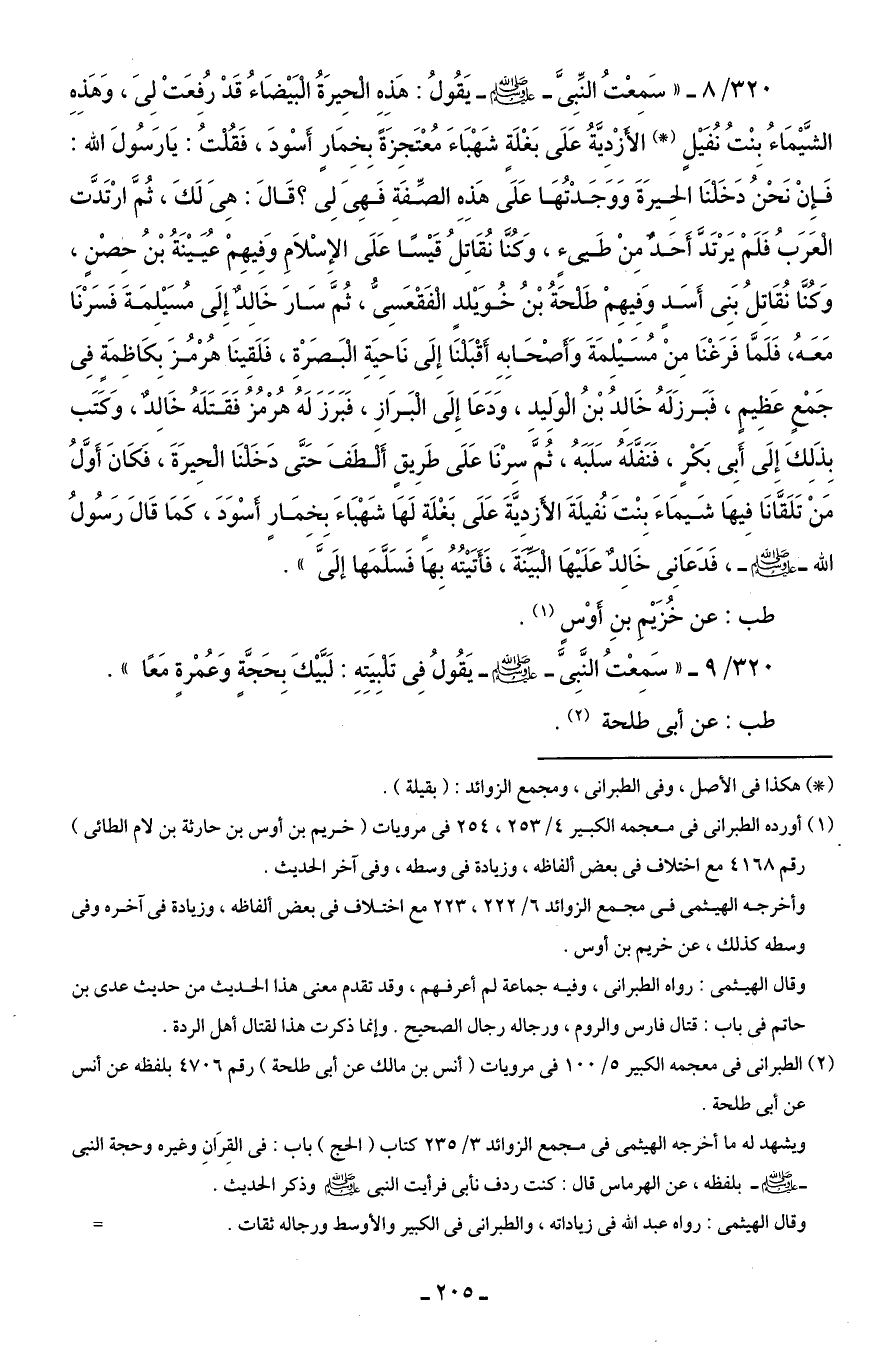 ٨/٣٢٠ ـ « سَمِعْتُ النَّبِىَّ ـ ﷺ ـ يَقُولُ : هَذِهِ الْحِيرَةُ الْبَيْضَاءُ قَدْ رُفِعَتْ لِى ، وَهَذِهِ
الشَّيْمَاءُ بِنْتُ نُفَيْلٍ (*) الأَزْدِيَّةُ عَلَى بَغْلَةٍ شَهْبَاءَ مُعْتَجِزَةً بِخِمَارٍ أَسْوَدَ ، فَقُلْتُ : يَارَسُولَ الله :
فَإِنْ نَحْنُ دَخَلْنَا الحِيرَةَ وَوَجَدْتُهَا عَلَى هَذِهِ الصِّفَةِ فَهِىَ لِى ؟ قَالَ : هِىَ لَكَ ، ثُمَّ ارْتَدَّتِ
الْعَرَبُ فَلَمْ يَرْتَدَّ أَحَدٌ مِنْ طَيىء ، وَكُنَّا نُقَاتِلُ قَيْسًا عَلَى الإِسْلَامِ وَفِيهِمْ عُيَيْنَةُ بْنُ حِصْنٍ ،
وَكُنَّا نُقَاتِلُ بَنِى أَسَدٍ وَفِيهِمْ طَلْحَةُ بْنُ خُوَيْلِدٍ الْفَقْعَسِىُّ ، ثُمَّ سَارَ خَالِدٌ إِلَى مُسَيْلِمَةَ فَسِرْنَا
مَعَهُ، فَلَمَّا فَرَغْنَا مِنْ مُسَيْلِمَةَ وَأَصْحَابِهِ أَقْبَلْنَا إِلَى نَاحِيَةِ الْبَصْرَةِ ، فَلَقِينَا هُرْمُزَ بِكَاظِمَةَ فِى
جَمْعٍ عَظِيمٍ ، فَبَرزَلَهُ خَالِدُ بْنُ الْوَلِيدِ ، وَدَعَا إِلَى الْبَرَازِ ، فَبَرَزَ لَهُ هُرْمُزُ فَقَتَلَهُ خَالِدٌ ، وَكَتَبَ
بِذَلِكَ إِلَى أَبِى بَكْرٍ ، فَنَفَّلَهُ سَلَبَهُ ، ثُمَّ سِرْنَا عَلَى طَرِيقِ أَلْطَفَ حَتَّى دَخَلْنَا الْحِيرَةَ ، فَكَانَ أَوَّلُ
مَنْ تَلَقَّانَا فِيهَا شَيمَاءَ بِنْتَ نُفيلَةَ الأَزْدِيَّةَ عَلَى بَغْلَةٍ لَهَا شَهْبَاءَ بِخِمَارٍ أَسْوَدَ ، كَمَا قَالَ رَسُولُ
الله ـ ﷺ ـ ، فَدَعَانِى خَالِدٌ عَلَيْهَا الْبَيِّنَةَ ، فَأَتَيْتُهُ بِهَا فَسَلَّمَهَا إِلَىَّ » .
طب : عن خُزَيْمِ بنِ أَوْسٍ (١) .
٩/٣٢٠ ـ « سَمِعْتُ النَّبِىَّ ـ ﷺ ـ يَقُولُ فِى تَلْبِيَتِهِ : لَبَّيْكَ بِحَجَّةٍ وَعُمْرةٍ مَعًا » .
طب : عن أبى طلحة (٢) .
(*) هكذا فى الأصل ، وفى الطبرانى ، ومجمع الزوائد : ( بقيلة ) .
(١) أورده الطبرانى فى معجمه الكبير ٤/ ٢٥٣ ، ٢٥٤ فى مرويات ( خريم بن أوس بن حارثة بن لام الطائى )
رقم ٤١٦٨ مع اختلاف فى بعض ألفاظه ، وزيادة فى وسطه ، وفى آخر الحديث .
وأخرجه الهيثمى فى مجمع الزوائد ٦/ ٢٢٢ ، ٢٢٣ مع اختلاف فى بعض ألفاظه ، وزيادة فى آخره وفى
وسطه كذلك ، عن خريم بن أوس .
وقال الهيثمى : رواه الطبرانى ، وفيه جماعة لم أعرفهم ، وقد تقدم معنى هذا الحديث من حديث عدى بن
حاتم فى باب : قتال فارس والروم ، ورجاله رجال الصحيح . وإنما ذكرت هذا لقتال أهل الردة .
(٢) الطبرانى فى معجمه الكبير ٥/ ١٠٠ فى مرويات ( أنس بن مالك عن أبى طلحة ) رقم ٤٧٠٦ بلفظه عن أنس
عن أبى طلحة .
ويشهد له ما أخرجه الهيثمى فى مجمع الزوائد ٣/ ٢٣٥ كتاب ( الحج ) باب : فى القِرَانِ وغيره وحجة النبى
ـ ﷺ ـ بلفظه ، عن الهرماس قال : كنت ردف نأبى فرأيت النبى ﷺ وذكر الحديث .
وقال الهيثمى : رواه عبد الله فى زياداته ، والطبرانى فى الكبير والأوسط ورجاله ثقات . =
ـ ٢٠٥ ـ